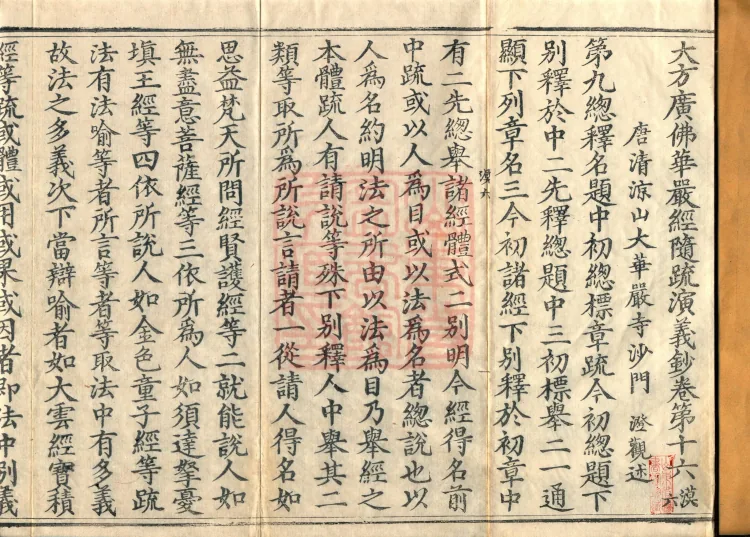 大方廣佛華嚴經隨疏演義鈔卷第十六 漠六
唐清涼山大華嚴寺沙門 澄觀述
第九總釋名題中初總標章疏今初總題下
別釋於中二先釋總題中三初標舉二一通
顯下列章名三今初諸經下別釋於初章中
有二先總舉諸經體式二別明今經得名前
中疏或以人爲目或以法爲名者總說也以
人爲名約明法之所由以法爲目乃舉經之
本體疏人有請說等殊下別釋人中舉其二
類等取所爲所說言請者一從請人得名如
思益梵天所問經賢護經等二就能說人如
無盡意菩薩經等三依所爲人如須達拏憂
塡王經等四依所說人如金色童子經等疏
法有法喻等者所言等者等取法中有多義
故法之多義次下當辯喻者如大雲經寶積
經等疏或體或用或果或因者即法中別義